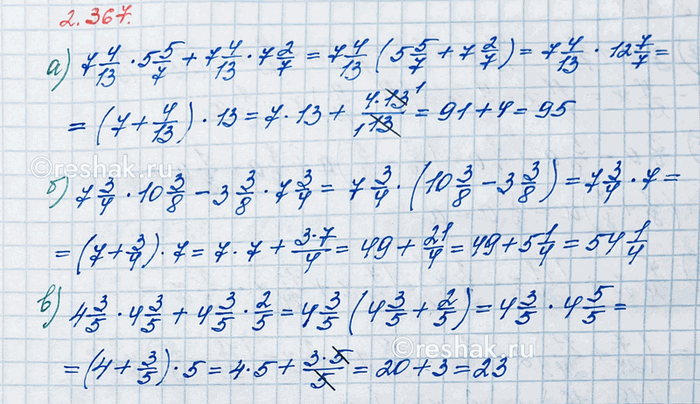 2.367.
а) 7 4/13 · 5 5/7 + 7 4/13 · 7 2/7 = 7 4/13 (5 5/7 + 7 2/7) = 7 4/13 · 12 7/7 =
= (7 + 4/13) · 13 = 7 · 13 + 4·13 1/1 13 = 91 + 4 = 95
© reshak.ru
б) 7 3/4 · 10 3/8 − 3 3/8 · 7 3/4 = 7 3/4 · (10 3/8 − 3 3/8) = 7 3/4 · 7 =
= (7 + 3/4) · 7 = 7 · 7 + 3·7/4 = 49 + 21/4 = 49 + 5 1/4 = 54 1/4
в) 4 3/5 · 4 3/5 + 4 3/5 · 2/5 = 4 3/5 (4 3/5 + 2/5) = 4 3/5 · 4 5/5 =
= (4 + 3/5) · 5 = 4 · 5 + 3·5/5 = 20 + 3 = 23
© reshak.ru